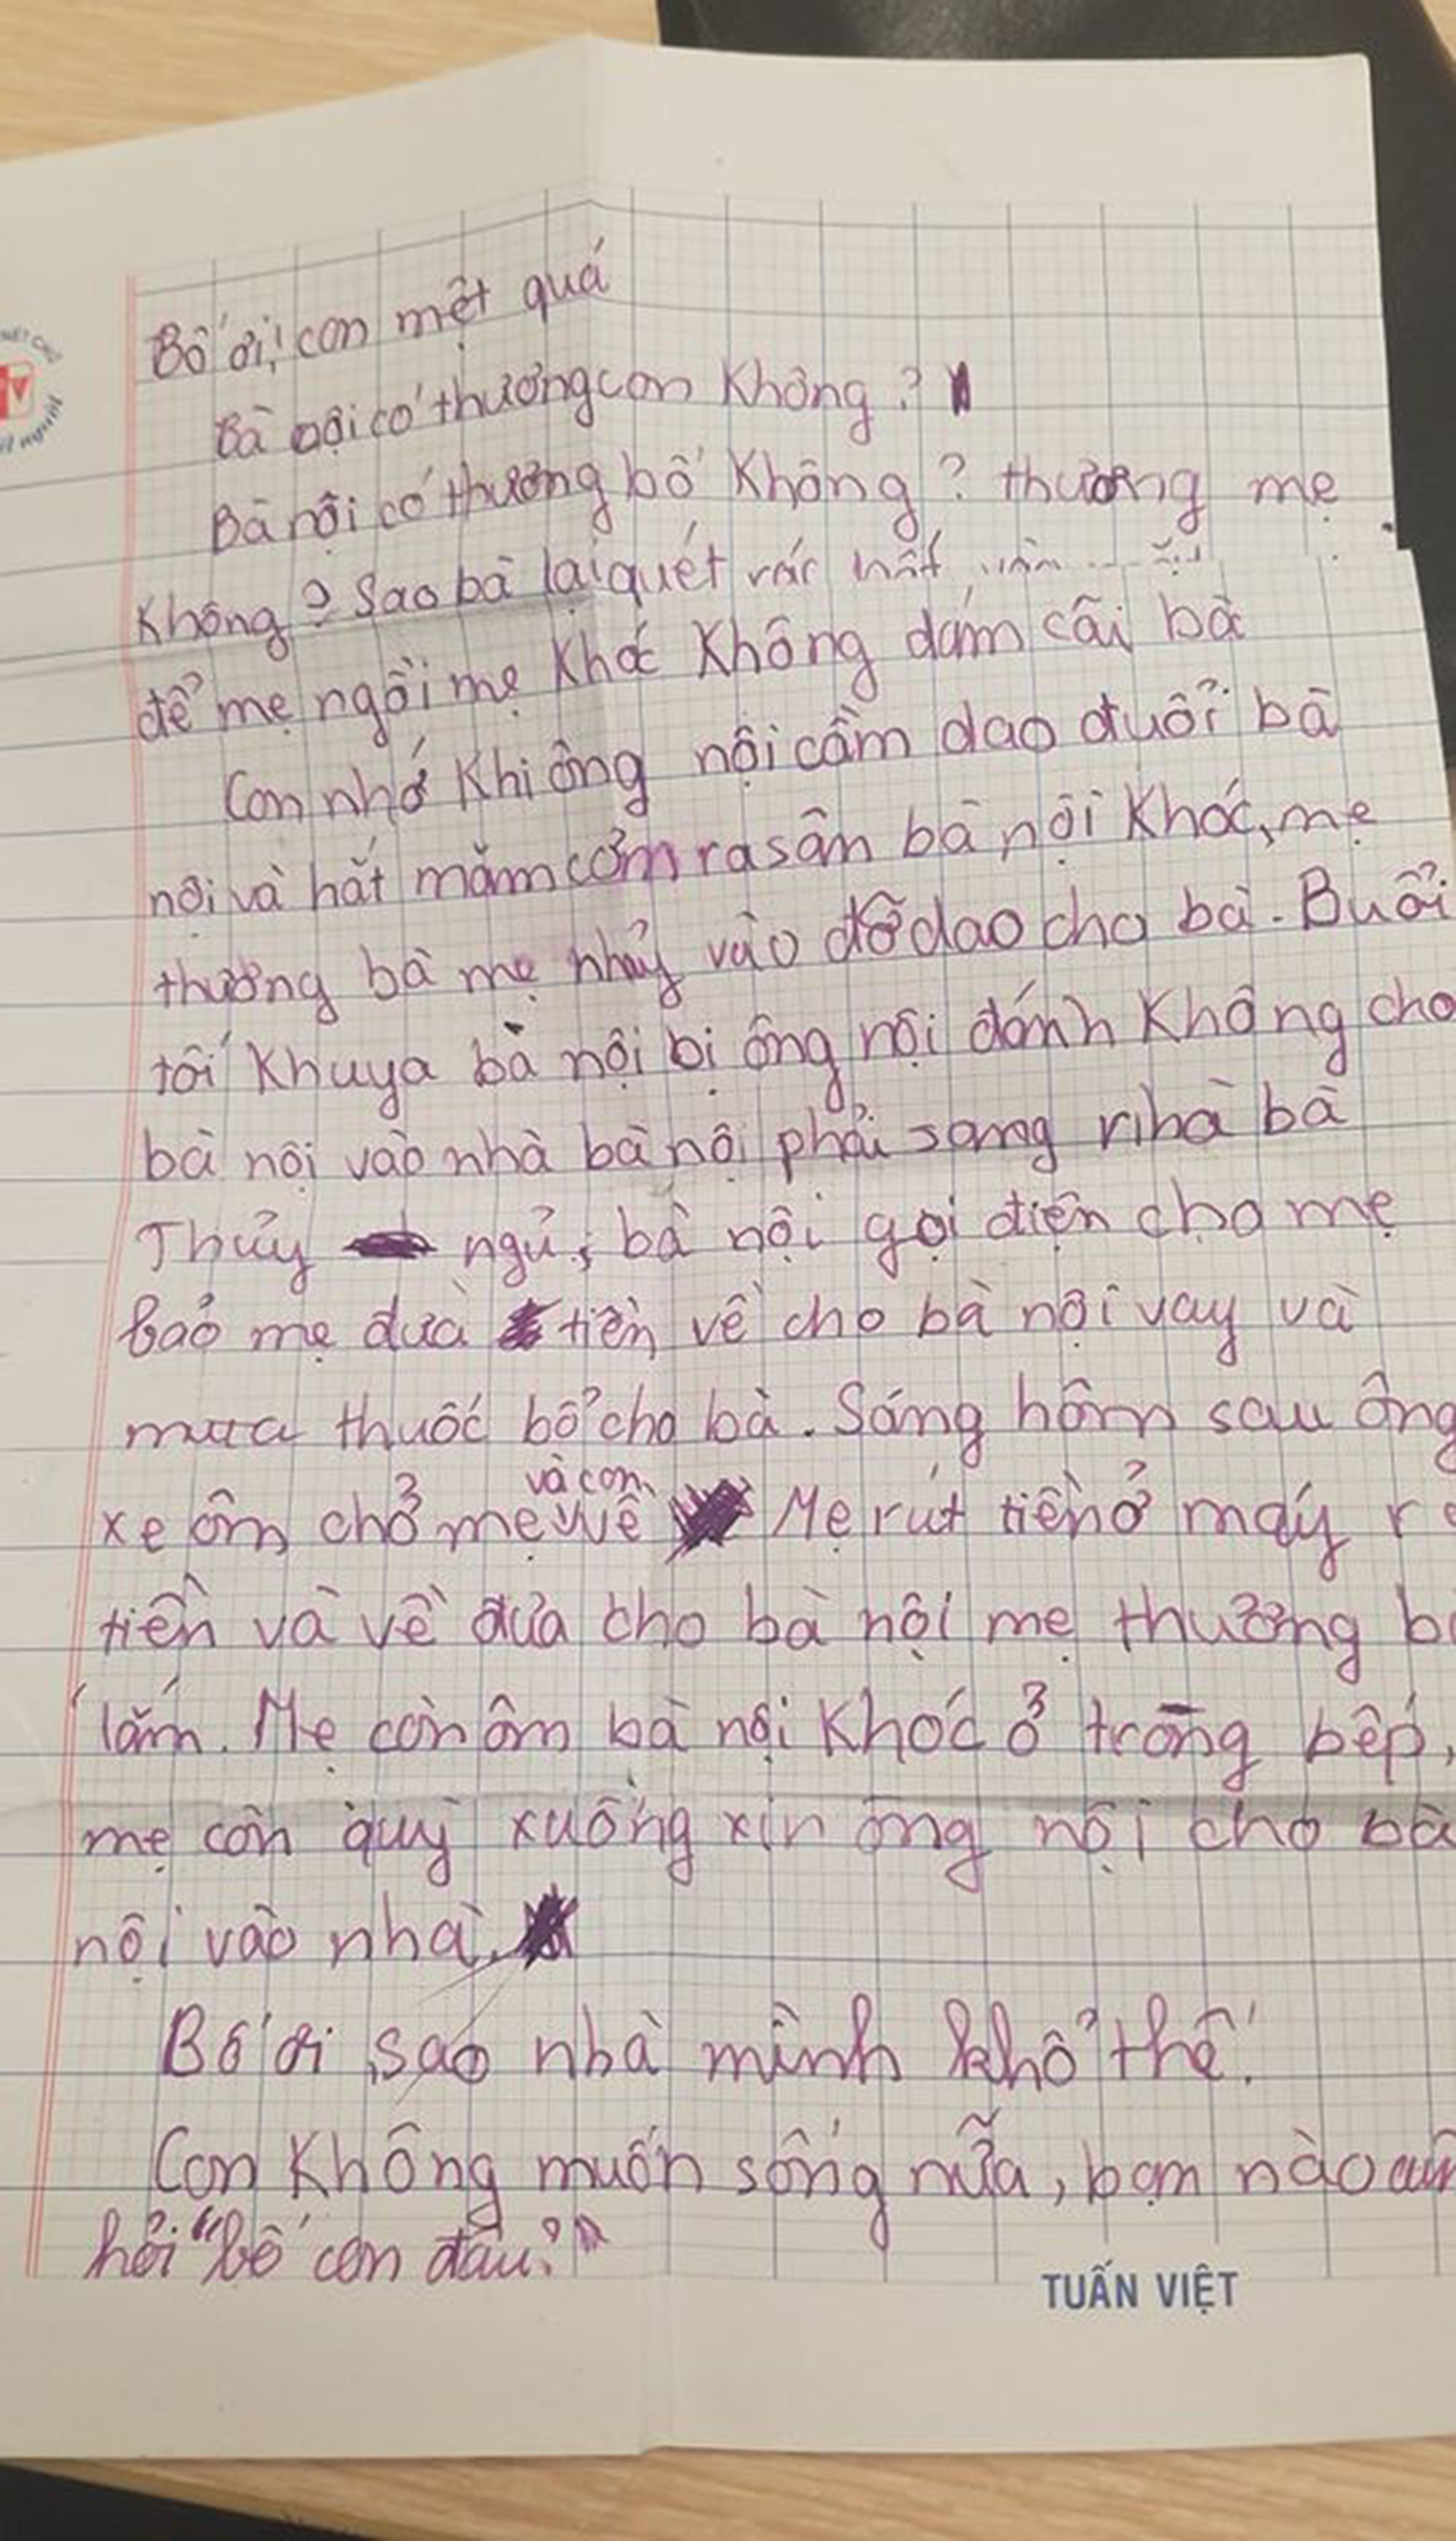 Bố ơi! con mệt quá
Bà nội có thương con Không?
Bà nội có thương bố Không? thương mẹ
Không? Sao bà lại quét rác hất
để mẹ ngồi mẹ Khóc Không dám cãi bà
Con nhớ Khi ông nội cầm dao đuổi bà
nội và hất mâm cơm ra sân bà nội Khóc, mẹ
thương bà mẹ nhảy vào đỡ dao cho bà. Buổi
tối Khuya bà nội bị ông nội đánh Không cho
bà nội vào nhà bà nội phải sang nhà bà
Thủy ngủ, bà nội gọi điện cho mẹ
bảo mẹ đưa tiền về cho bà nội vay và
mua thuốc bổ cho bà. Sáng hôm sau ông
xe ôm chở mẹ và con về Mẹ rút tiền ở máy
tiền và về đưa cho bà nội mẹ thương
lắm. Mẹ còn ôm bà nội Khóc ở trong bếp,
mẹ còn quỳ xuống xin ông nội cho bà
nội vào nhà.
Bố ơi sao nhà mình khổ thế.
Con Không muốn sống nữa, bạn nào
hỏi "bố con đâu?"
TUẤN VIỆT